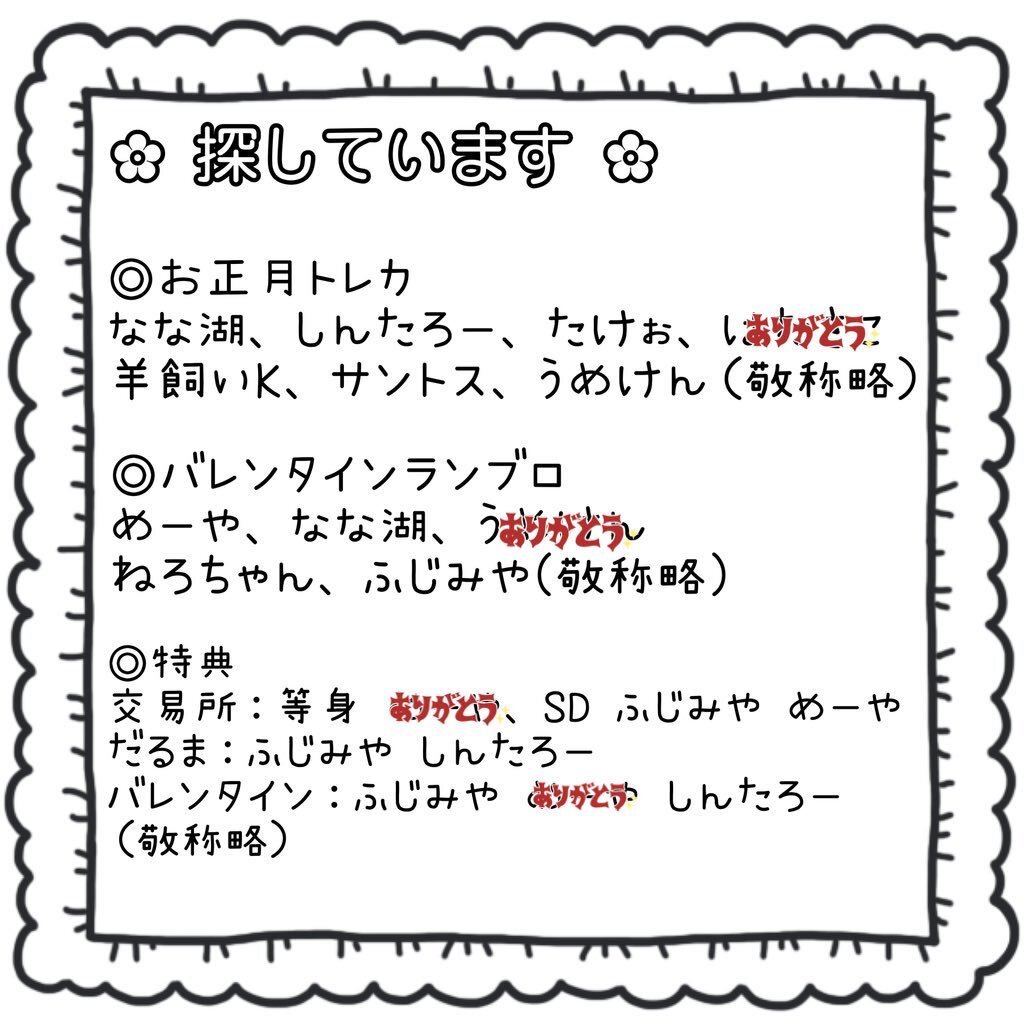 ✿ 探しています ✿
◎お正月トレカ
なな湖、しんたろー、たけぉ、ありがとう
羊飼いK、サントス、うめけん(敬称略)
◎バレンタインランブロ
めーや、なな湖、ありがとう
ねろちゃん、ふじみや(敬称略)
◎特典
交易所：等身 ありがとう、SD ふじみや めーや
だるま：ふじみや しんたろー
バレンタイン：ふじみや ありがとう しんたろー
(敬称略)